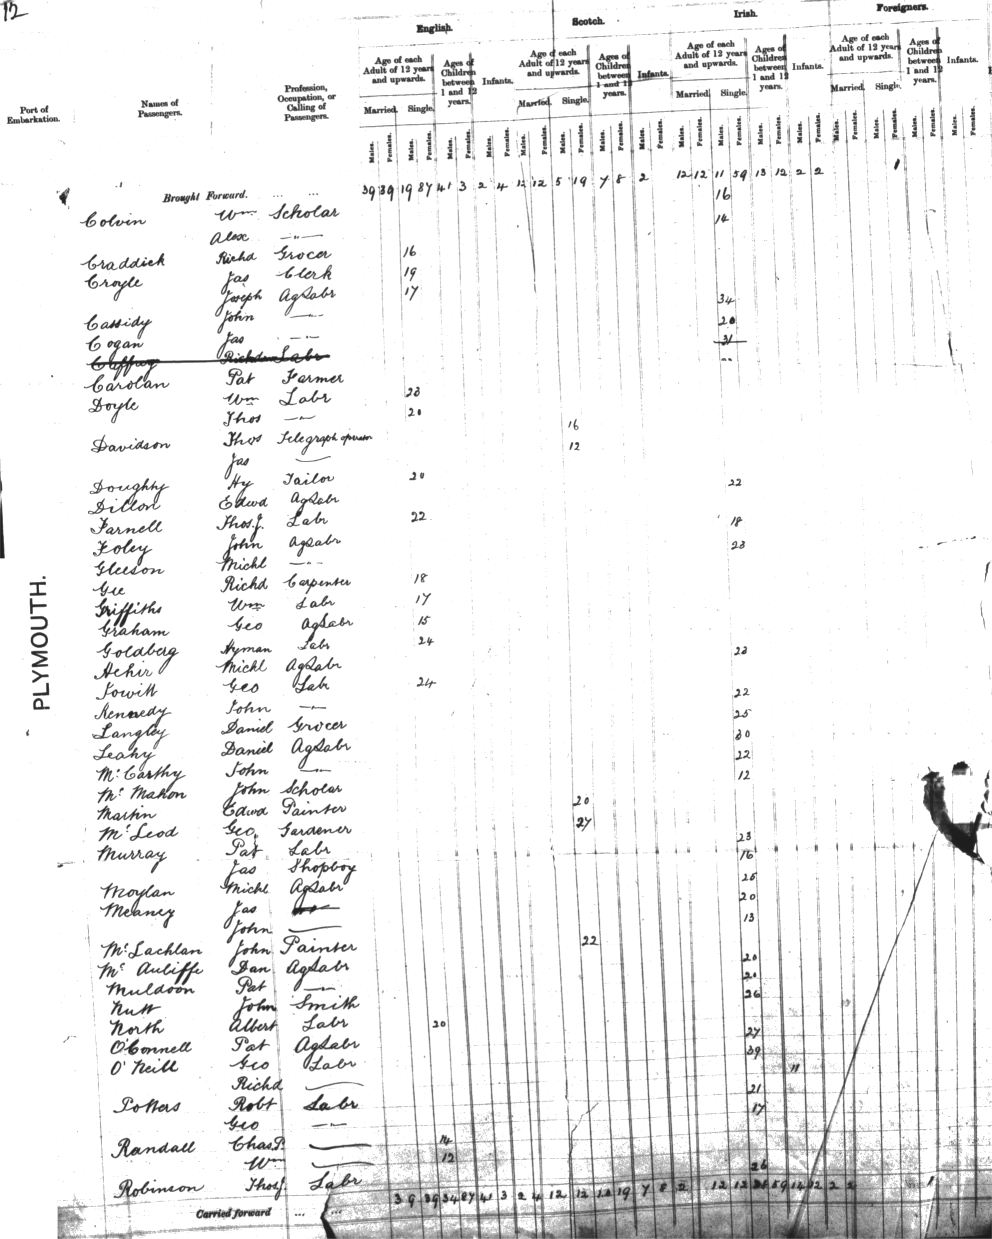 12
English. Scotch. Irish. Foreigners.
Port of Embarkation. Names of Passengers. Profession, Occupation, or Calling of Passengers.
Age of each Adult of 12 years and upwards. Ages of Children between 1 and 12 years. Infants. Age of each Adult of 12 years and upwards. Ages of Children between 1 and 12 years. Infants. Age of each Adult of 12 years and upwards. Ages of Children between 1 and 12 years. Infants. Age of each Adult of 12 years and upwards. Ages of Children between 1 and 12 years. Infants.
Married. Single. Married. Single. Married. Single. Married. Single.
Males. Females. Males. Females. Males. Females. Males. Females. Males. Females. Males. Females. Males. Females. Males. Females. Males. Females. Males. Females. Males. Females. Males. Females. Males. Females. Males. Females. Males. Females. Males. Females.
Brought Forward. ... ... 39 39 19 87 41 3 2 4 12 12 5 19 7 8 2 12 12 11 59 13 12 2 2 1
Colvin Wm Scholar 16
Alex —"— 14
Craddick Richd Grocer 16
Croyle Jas Clerk 19
Joseph AgLabr 17
Cassidy John —"— 34
Cogan Jas —"— 20
Labr 31
Carolan Pat Farmer
Doyle Wm Labr 23
Thos —"— 20
Davidson Thos Telegraph operator 16
Jas 12
Doughty Hy Tailor 20
Dillon Edwd AgLabr 22
Farnell Thos. J. Labr 22
Foley John AgLabr 18
Gleeson Michl —"— 23
Gee Richd Carpenter 18
Griffiths Wm Labr 17
Graham Geo AgLabr 15
Goldberg Hyman Labr 24
Hehir Michl AgLabr 23
Jowitt Geo Labr 24
Kennedy John —"— 22
Langley Daniel Grocer 25
Leahy Daniel AgLabr 30
McCarthy John —"— 22
McMahon John Scholar 12
Martin Edwd Painter 20
McLeod Geo. Gardener 27
Murray Pat Labr 23
Jas Shopboy 16
Moylan Michl AgLabr 25
Meaney Jas 20
John 13
McLachlan John Painter 22
McAuliffe Dan AgLabr 20
Muldoon Pat —"— 20
Nutt John Smith 26
North Albert Labr 20
O'Connell Pat AgLabr 27
O'Neill Geo Labr 39
Richd 11
Potters Robt Labr 21
Geo —"— 17
Randall Chas. P. 14
Wm 12
Robinson Thos J. Labr 26
Carried forward ... ... 39 39 34 87 41 3 2 4 12 12 12 19 7 8 2 12 12 59 14 12 2 2 1
PLYMOUTH.